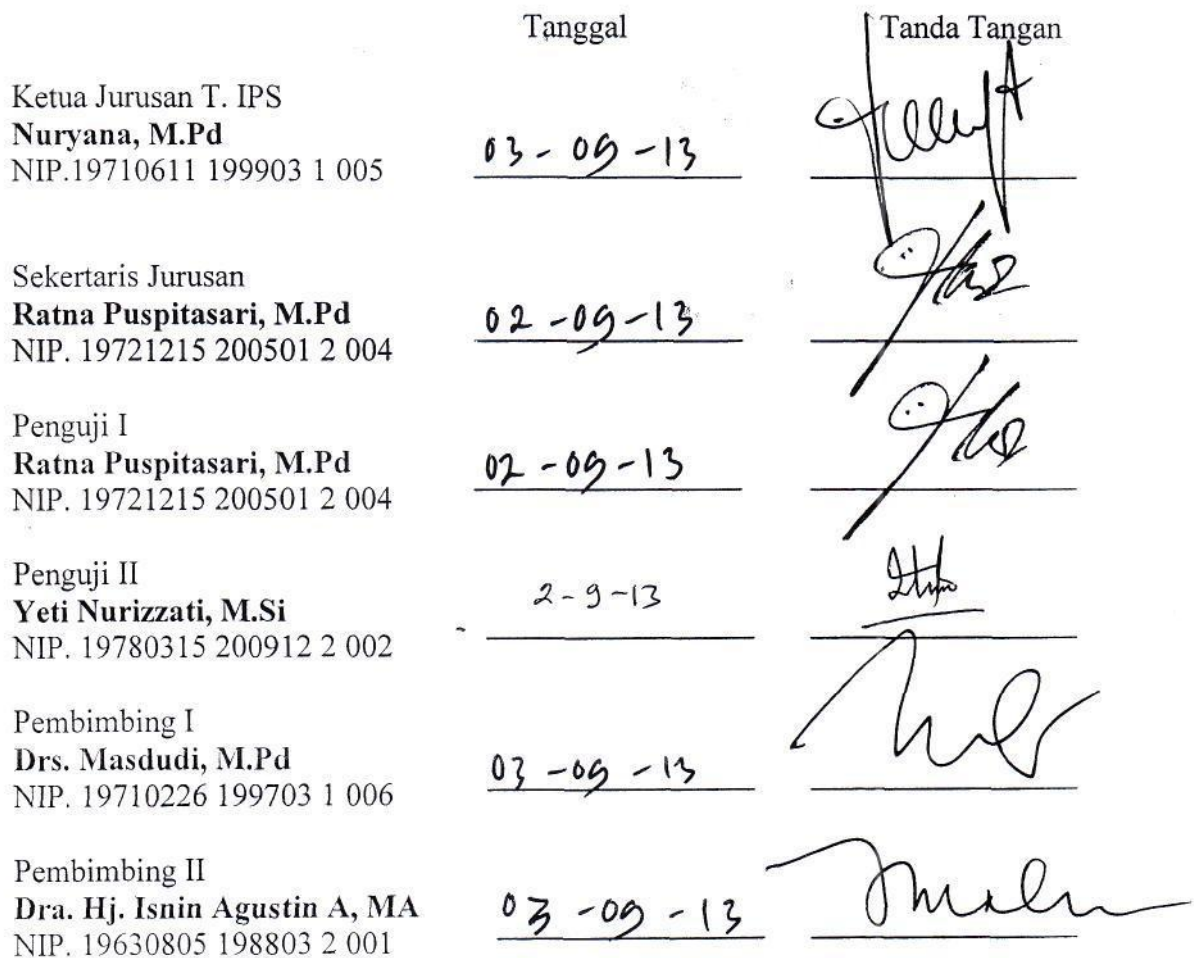 Tanggal Tanda Tangan
Ketua Jurusan T. IPS
Nuryana, M.Pd
NIP.19710611 199903 1 005
03-09-13
Sekertaris Jurusan
Ratna Puspitasari, M.Pd
NIP. 19721215 200501 2 004
02-09-13
Penguji I
Ratna Puspitasari, M.Pd
NIP. 19721215 200501 2 004
02-09-13
Penguji II
Yeti Nurizzati, M.Si
NIP. 19780315 200912 2 002
2-9-13
Pembimbing I
Drs. Masdudi, M.Pd
NIP. 19710226 199703 1 006
03-09-13
Pembimbing II
Dra. Hj. Isnin Agustin A, MA
NIP. 19630805 198803 2 001
03-09-13